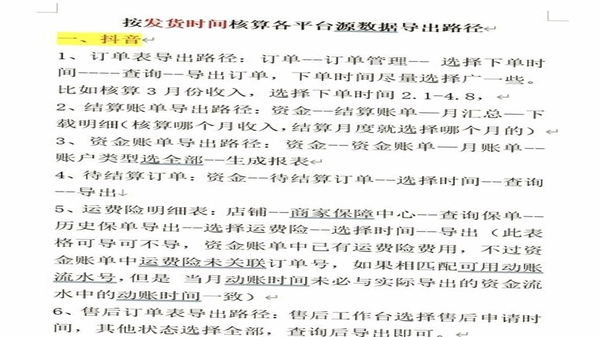 按发货时间核算各平台源数据导出路径
一、抖音
1、订单表导出路径：订单--订单管理-- 选择下单时
间----查询--导出订单，下单时间尽量选择广一些。
比如核算3月份收入，选择下单时间2.1-4.8，
2、结算账单导出路径：资金--结算账单—月汇总—下
载明细（核算哪个月收入，结算月度就选择哪个月的）
3、资金账单导出路径：资金--资金账单—月账单--
账户类型选全部--生成报表
4、待结算订单：资金--待结算订单--选择时间--查询
--导出
5、运费险明细表：店铺--商家保障中心--查询保单--
历史保单导出--选择运费险--选择时间--导出（此表
格可导可不导，资金账单中已有运费险费用，不过资
金账单中运费险未关联订单号，如果相匹配可用动账
流水号，但是 当月动账时间未必与实际导出的资金流
水中的动账时间一致）
6、售后订单导出路径：售后工作台选择售后申请时
间，其他状态选择全部，查询后导出即可。